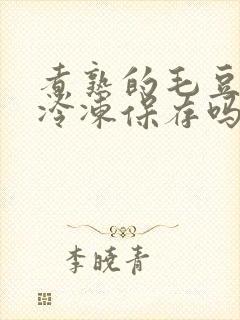 煮熟的毛豆
冷冻保存吗
李晓青